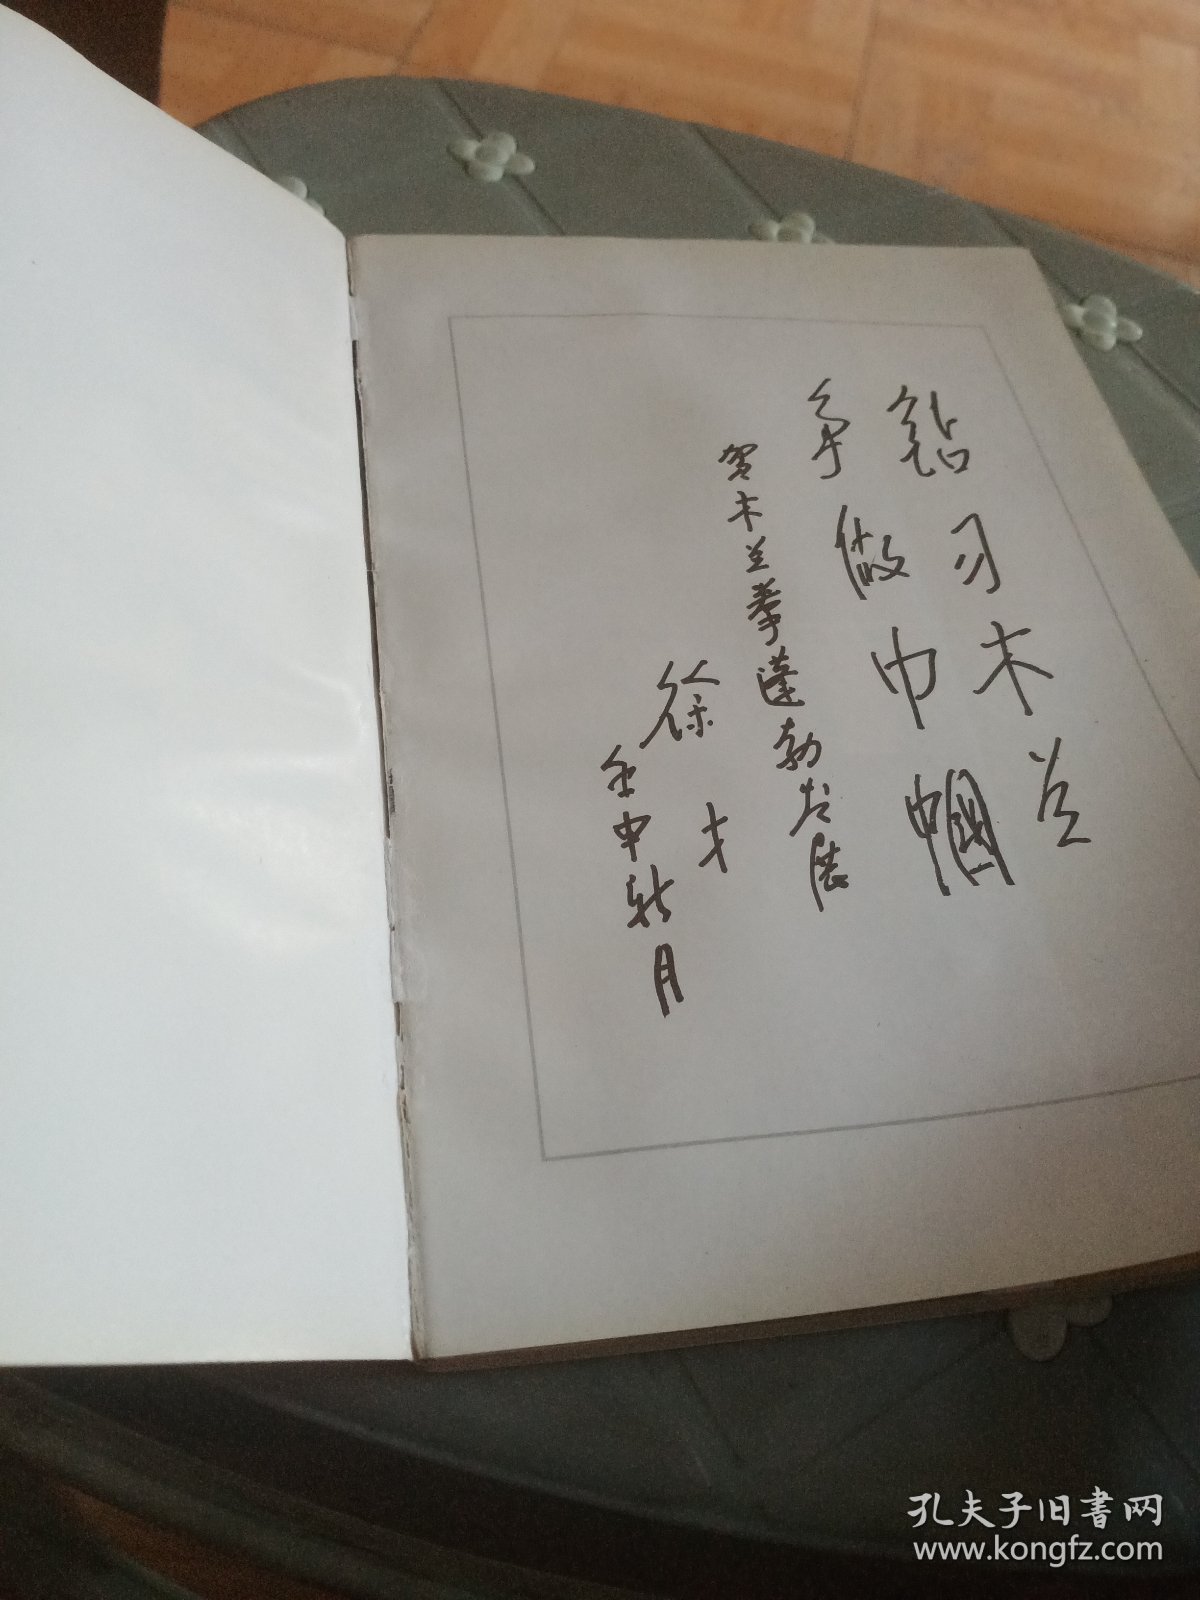 钻习木兰
争做巾帼
贺木兰拳蓬勃发展
徐才
壬申秋月
孔夫子旧書网
www.kongfz.com